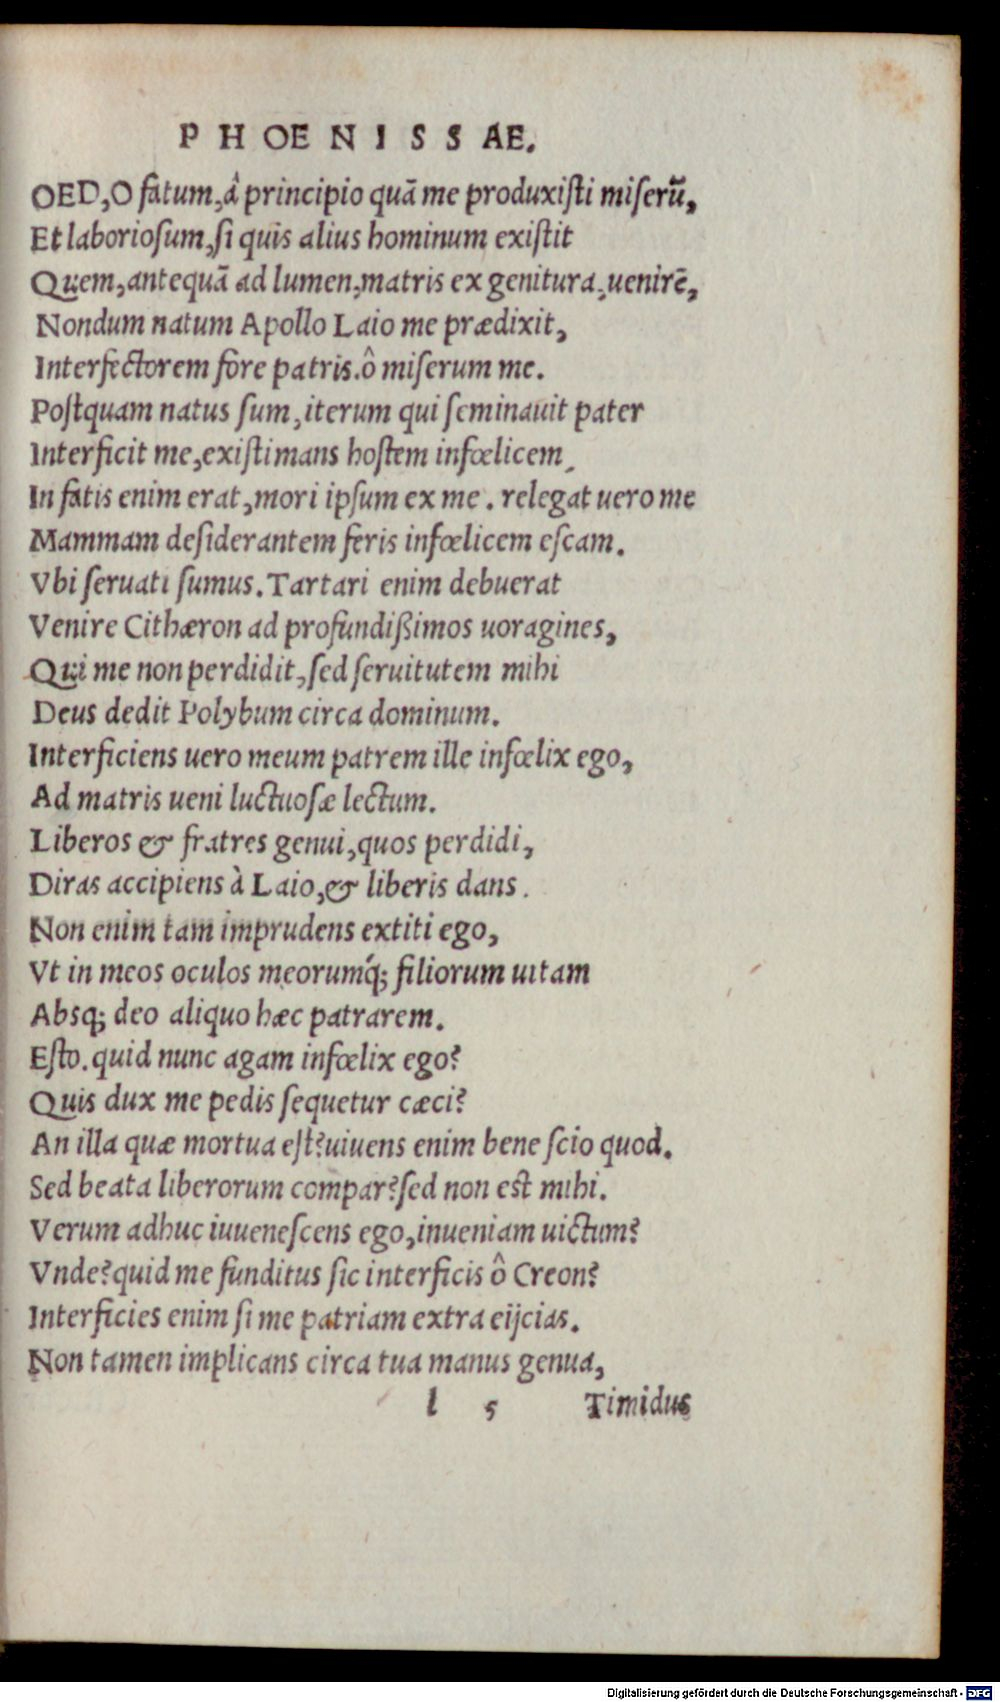 PHOENISSAE.
OED, O fatum, â principio quã me produxiſti miſerũ,
Et laborioſum, ſi quis alius hominum exiſtit
Quem, antequã ad lumen, matris ex genitura, uenirẽ,
Nondum natum Apollo Laio me prædixit,
Interfectorem fore patris. ô miſerum me.
Poſtquam natus ſum, iterum qui ſeminauit pater
Interficit me, exiſtimans hoſtem infœlicem,
In fatis enim erat, mori ipſum ex me. relegat uero me
Mammam deſiderantem feris infœlicem eſcam.
Vbi ſeruati ſumus. Tartari enim debuerat
Venire Cithæron ad profundißimos uoragines,
Qui me non perdidit, ſed ſeruitutem mihi
Deus dedit Polybum circa dominum.
Interficiens uero meum patrem ille infœlix ego,
Ad matris ueni luctuoſæ lectum.
Liberos & fratres genui, quos perdidi,
Diras accipiens à Laio, & liberis dans.
Non enim tam imprudens extiti ego,
Vt in meos oculos meorumq́; filiorum uitam
Absq; deo aliquo hæc patrarem.
Eſto. quid nunc agam infœlix ego?
Quis dux me pedis ſequetur cæci?
An illa quæ mortua eſt? uiuens enim bene ſcio quod.
Sed beata liberorum compar? ſed non est mihi.
Verum adhuc iuueneſcens ego, inueniam uictum?
Vnde? quid me funditus ſic interficis ô Creon?
Interficies enim ſi me patriam extra eijcias.
Non tamen implicans circa tua manus genua,
l 5 Timidus
Digitalisierung gefördert durch die Deutsche Forschungsgemeinschaft - DFG